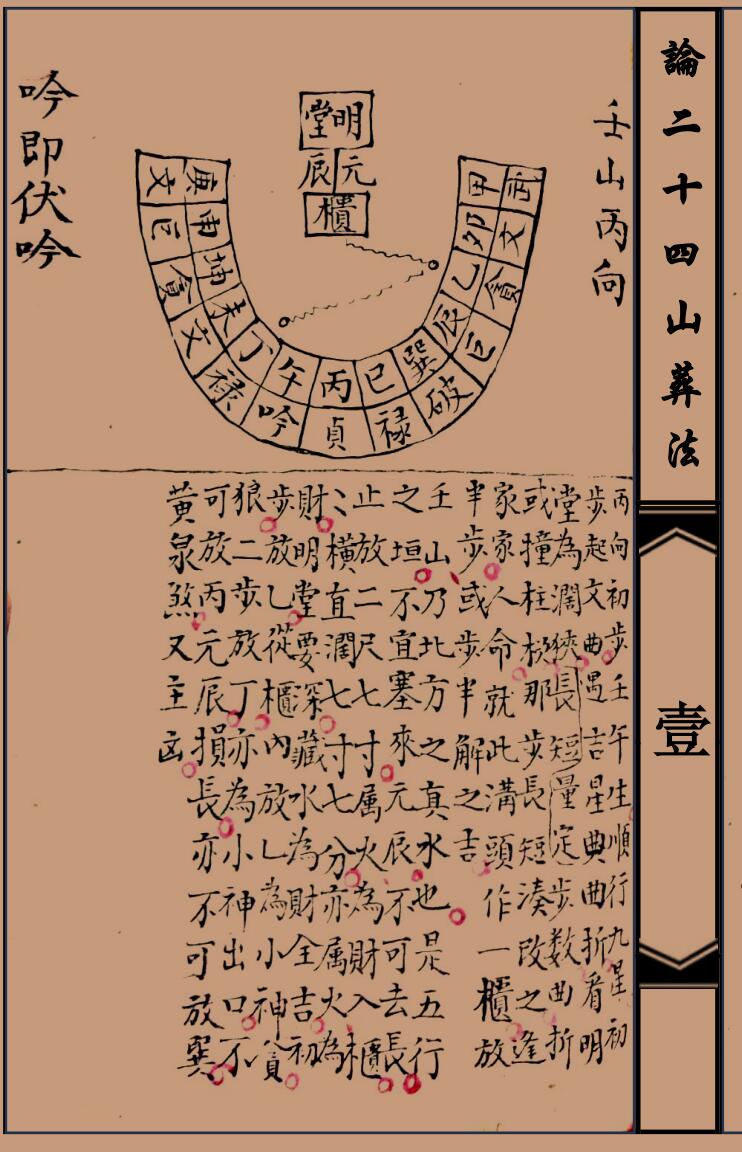 論二十四山葬法
壹
壬山丙向
明堂
元辰
櫃
甲卯乙辰巽巳丙午丁未坤申庚
武文貪巨破祿貞吟祿文貪巨文
吟即伏吟
丙向初步壬午生順行九星初
步起文曲遇吉星典曲折看明
堂為濶狹長短量定步数曲折
或撞柱那步長短湊改之逢
家家人命就此溝頭作一櫃放
半步或步半解之吉
壬山乃北方之真水也是五行
之垣不宜塞來元辰不可去長
止放二尺七寸属火為財入櫃
〻橫直濶七寸七分亦属火為
財明堂要深藏水為財全吉初
步放乙從櫃內放乙為小神貪
狼二步放丁亦為小神出口不
可放丙元辰損長亦不可放巽
黃泉煞又主凶